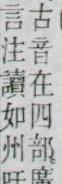 古音在四部。廣
言注讀如州